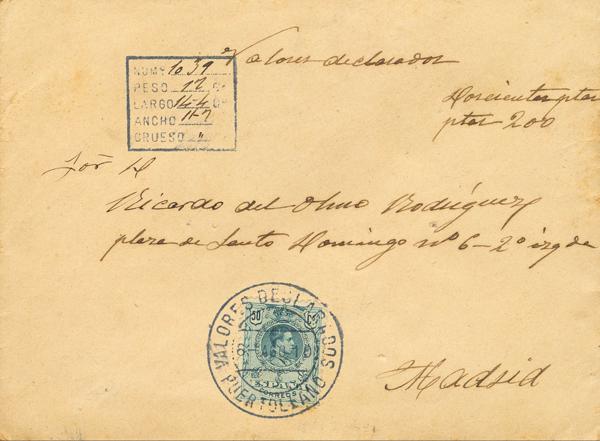 Valores declarados
NUMº 1039
PESO 12 Gr
LARGO 14-4
ANCHO 11-7
GRUESO "
Doscientas ptas
ptas 200
Sor D
Ricardo del Olmo Rodríguez
plaza de Santo Domingo nº 6-2º izqda
VALORES DECLARADOS
PUERTOLLANO
CORREOS
Madrid